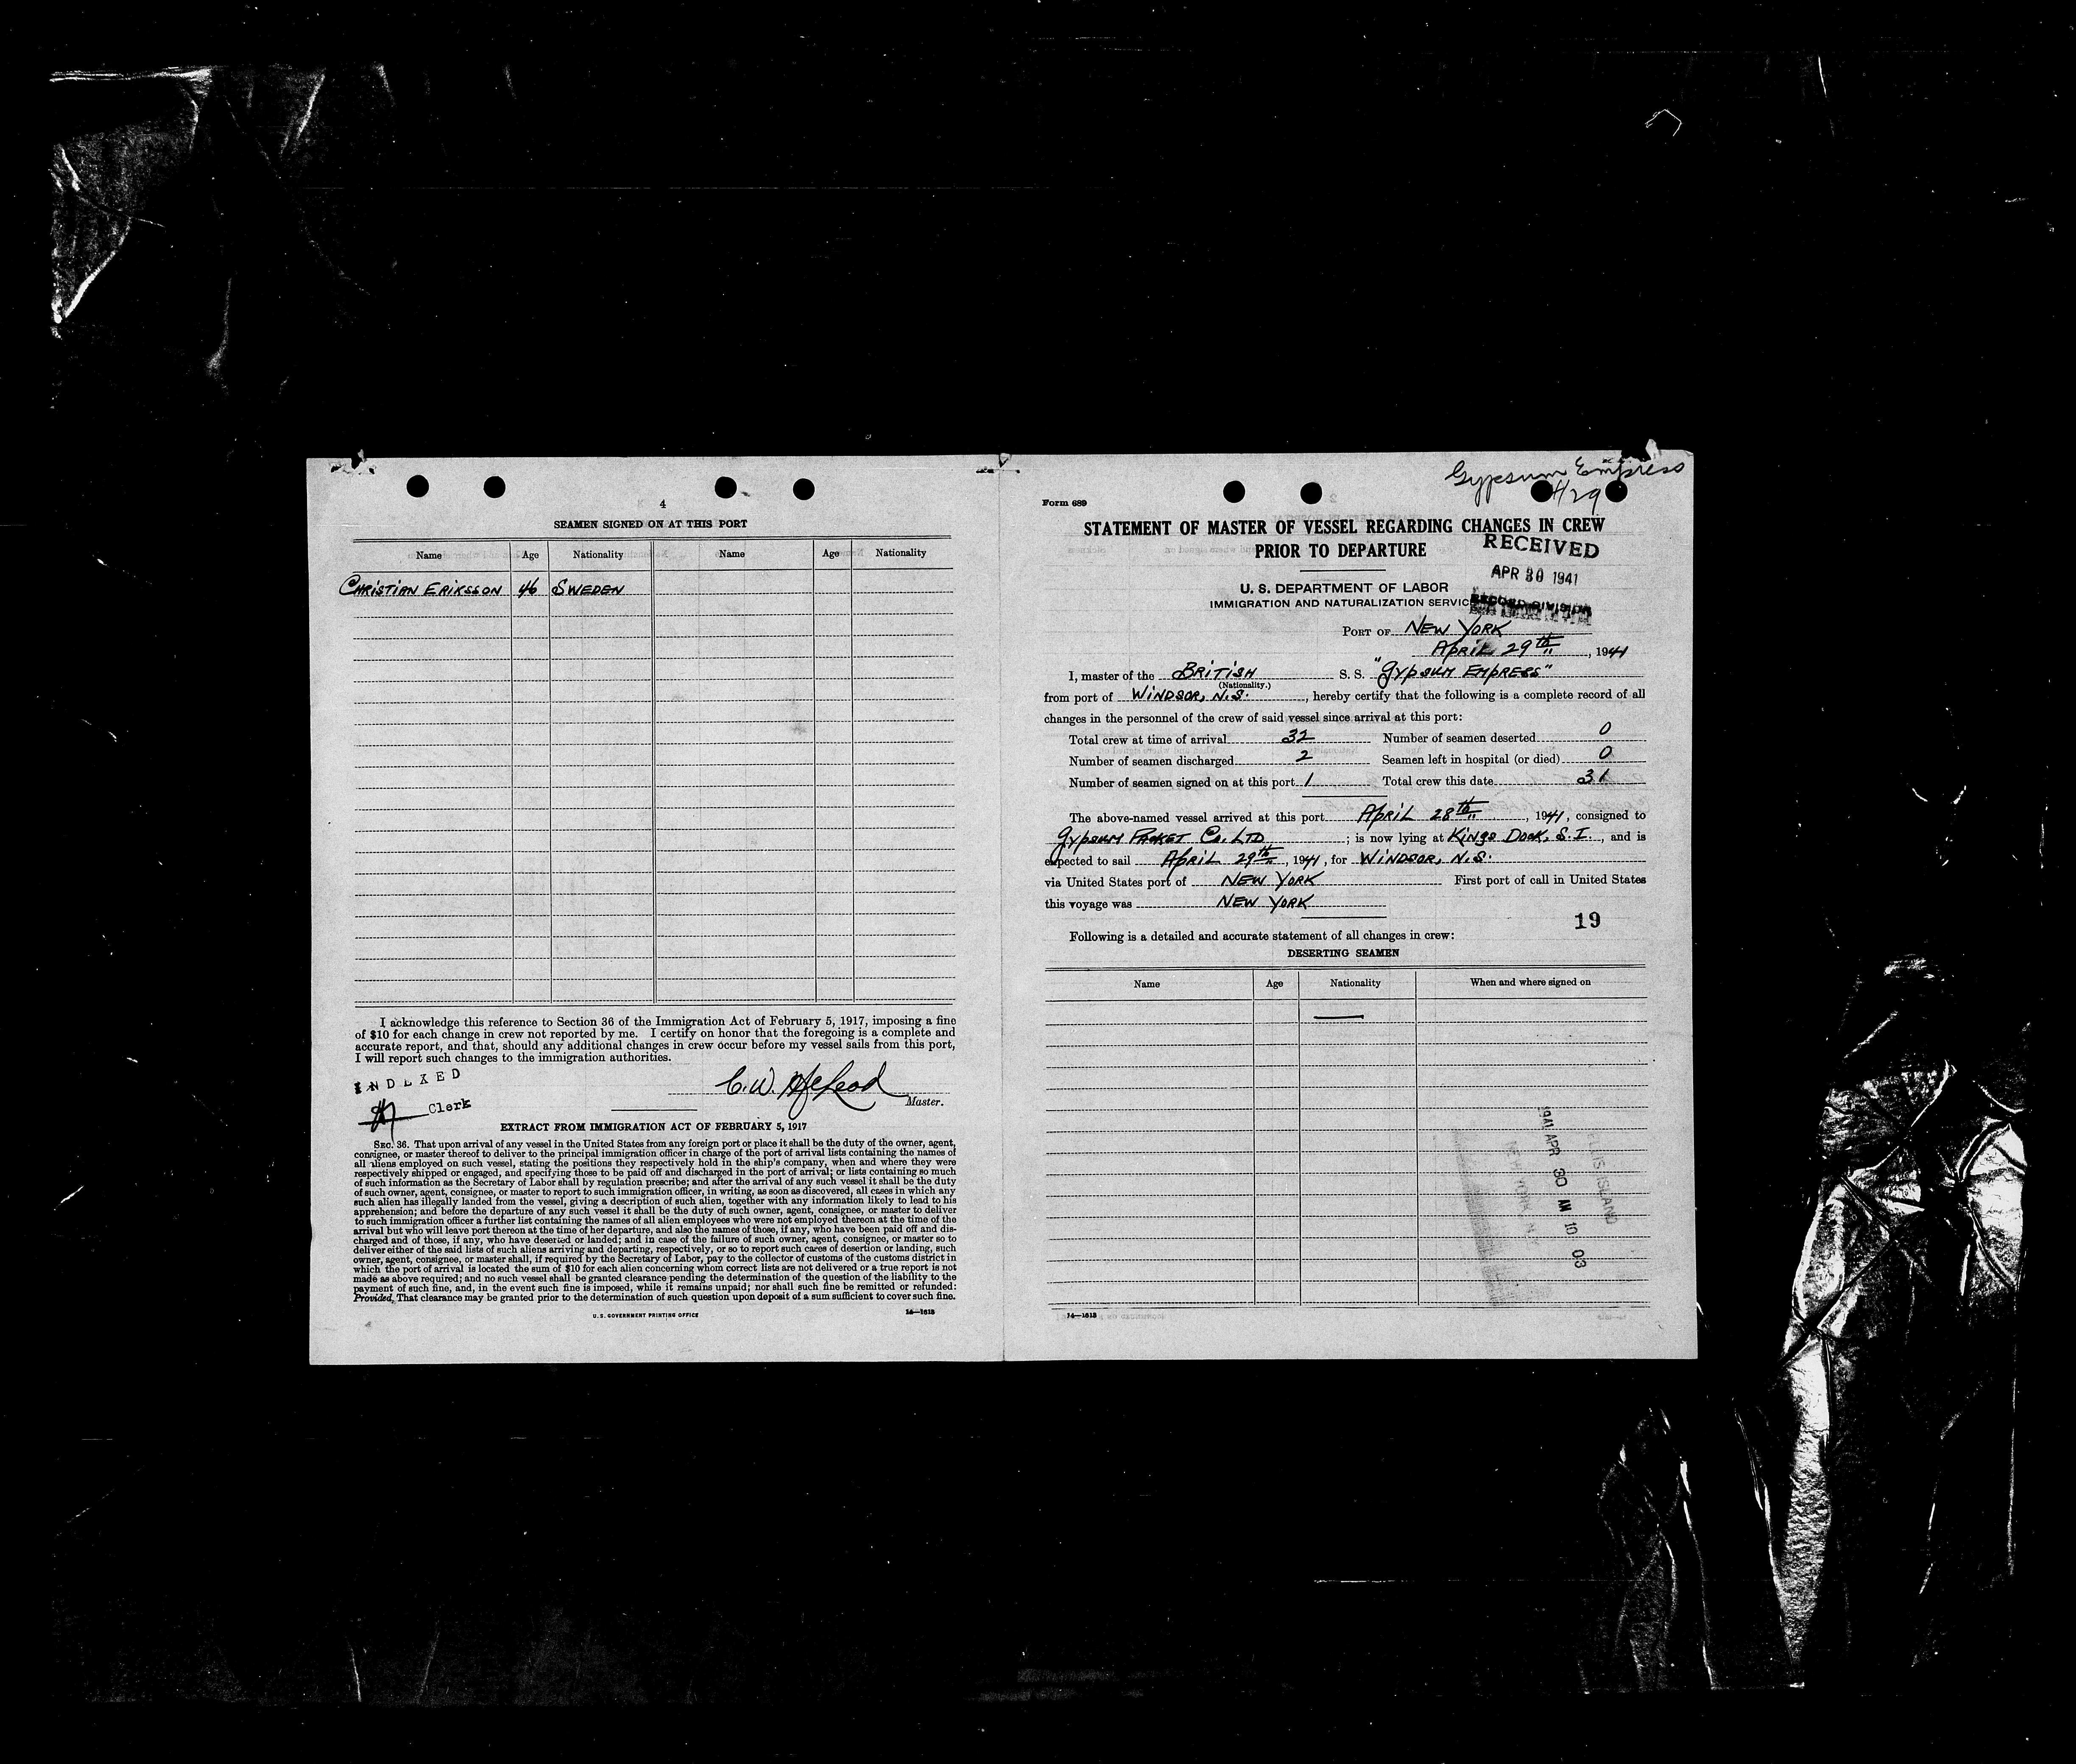 4
SEAMEN SIGNED ON AT THIS PORT
Name Age Nationality Name Age Nationality
CHRISTIAN ERIKSSON 46 SWEDEN
I acknowledge this reference to Section 36 of the Immigration Act of February 5, 1917, imposing a fine
of $10 for each change in crew not reported by me. I certify on honor that the foregoing is a complete and
accurate report, and that, should any additional changes in crew occur before my vessel sails from this port,
I will report such changes to the immigration authorities.
INDEXED
C. W. McLeod
Clerk
Master.
EXTRACT FROM IMMIGRATION ACT OF FEBRUARY 5, 1917
SEC. 36. That upon arrival of any vessel in the United States from any foreign port or place it shall be the duty of the owner, agent,
consignee, or master thereof to deliver to the principal immigration officer in charge of the port of arrival lists containing the names of
all aliens employed on such vessel, stating the positions they respectively hold in the ship's company, when and where they were
respectively shipped or engaged, and specifying those to be paid off and discharged in the port of arrival; or lists containing so much
of such information as the Secretary of Labor shall by regulation prescribe; and after the arrival of any such vessel it shall be the duty
of such owner, agent, consignee, or master to report to such immigration officer, in writing, as soon as discovered, all cases in which any
such alien has illegally landed from the vessel, giving a description of such alien, together with any information likely to lead to his
apprehension; and before the departure of any such vessel it shall be the duty of such owner, agent, consignee, or master to deliver
to such immigration officer a further list containing the names of all alien employees who were not employed thereon at the time of the
arrival but who will leave port thereon at the time of her departure, and also the names of those, if any, who have been paid off and dis-
charged and of those, if any, who have deserted or landed; and in case of the failure of such owner, agent, consignee, or master so to
deliver either of the said lists of such aliens arriving and departing, respectively, or so to report such cases of desertion or landing, such
owner, agent, consignee, or master shall, if required by the Secretary of Labor, pay to the collector of customs of the customs district in
which the port of arrival is located the sum of $10 for each alien concerning whom correct lists are not delivered or a true report is not
made as above required; and no such vessel shall be granted clearance pending the determination of the question of the liability to the
payment of such fine, and, in the event such fine is imposed, while it remains unpaid; nor shall such fine be remitted or refunded:
Provided, That clearance may be granted prior to the determination of such question upon deposit of a sum sufficient to cover such fine.
U. S. GOVERNMENT PRINTING OFFICE 14—1613
Gypsum Empress
4/29
Form 689
STATEMENT OF MASTER OF VESSEL REGARDING CHANGES IN CREW
PRIOR TO DEPARTURE
RECEIVED
APR 30 1941
RECORD DIVISION
U. S. DEPARTMENT OF LABOR
IMMIGRATION AND NATURALIZATION SERVICE
PORT OF NEW YORK
APRIL 29th, 1941
I, master of the BRITISH S. S. "GYPSUM EMPRESS"
(Nationality.)
from port of WINDSOR, N.S., hereby certify that the following is a complete record of all
changes in the personnel of the crew of said vessel since arrival at this port:
Total crew at time of arrival 32 Number of seamen deserted 0
Number of seamen discharged 2 Seamen left in hospital (or died) 0
Number of seamen signed on at this port 1 Total crew this date 31
The above-named vessel arrived at this port APRIL 28th, 1941, consigned to
GYPSUM PACKET Co. LTD; is now lying at KINGS DOCK, S.I., and is
expected to sail APRIL 29th, 1941, for WINDSOR, N.S.
via United States port of NEW YORK First port of call in United States
this voyage was NEW YORK
19
Following is a detailed and accurate statement of all changes in crew:
DESERTING SEAMEN
Name Age Nationality When and where signed on
—
1941 APR 30 AM 10 03
ELLIS ISLAND
NEW YORK N.Y.
14—1613